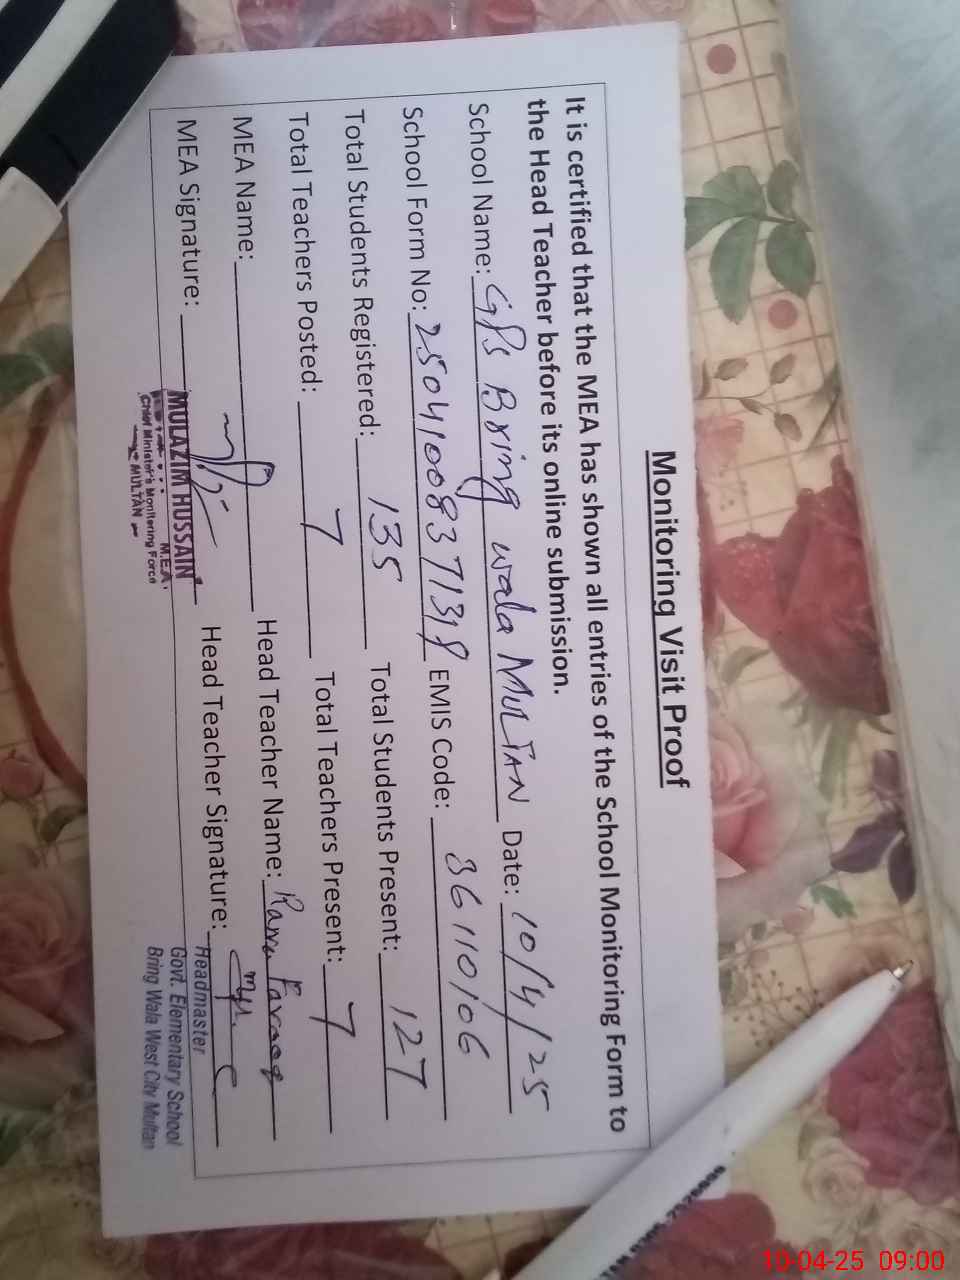 Monitoring Visit Proof
It is certified that the MEA has shown all entries of the School Monitoring Form to
the Head Teacher before its online submission.
School Name: GPS Bring wala MULTAN Date: 10/4/25
School Form No: 25041008371318 EMIS Code: 36110106
Total Students Registered: 135 Total Students Present: 127
Total Teachers Posted: 7 Total Teachers Present: 7
MEA Name: Head Teacher Name: Rana Farooq
MEA Signature: Head Teacher Signature:
MULAZIM HUSSAIN
M.E.A.
Chief Minister's Monitoring Force
MULTAN
Headmaster
Govt. Elementary School
Bring Wala West City Multan
10-04-25 09:00